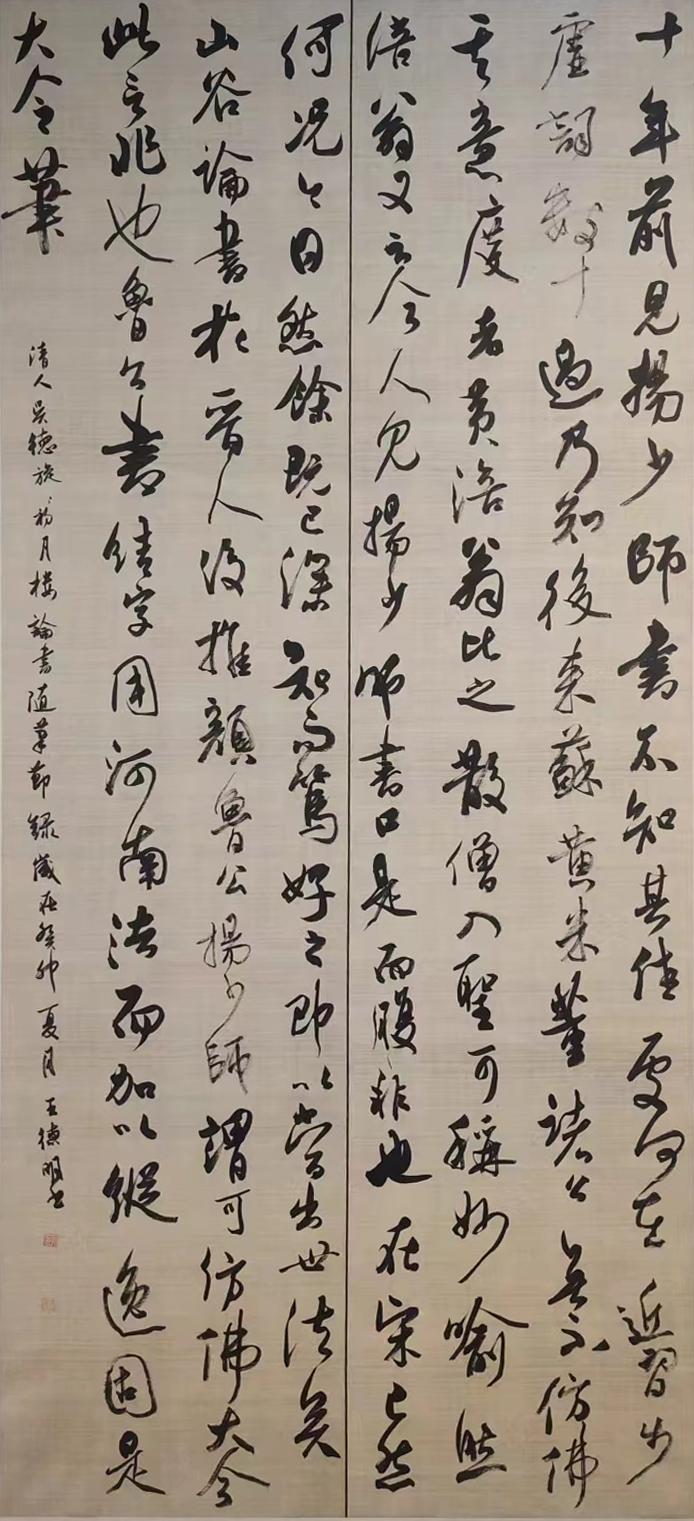 十年前見楊少師書不知其佳處何在近習步
虛詞數十過乃知後來蘇黃米董諸公無不仿佛
其意度者黃涪翁比之散僧入聖可稱妙喻然
涪翁又云今人見楊少師書口是而腹非也在宋已然
何況今日然餘既已深知而篤好之即以當出世法矣
山谷論書於晉人後推顏魯公楊少師謂可仿佛大令
此言非也魯公書結字用河南法而加以縱逸固是
大令筆
清人吳德旋初月樓論書隨筆節錄歲在癸卯夏月王德明書